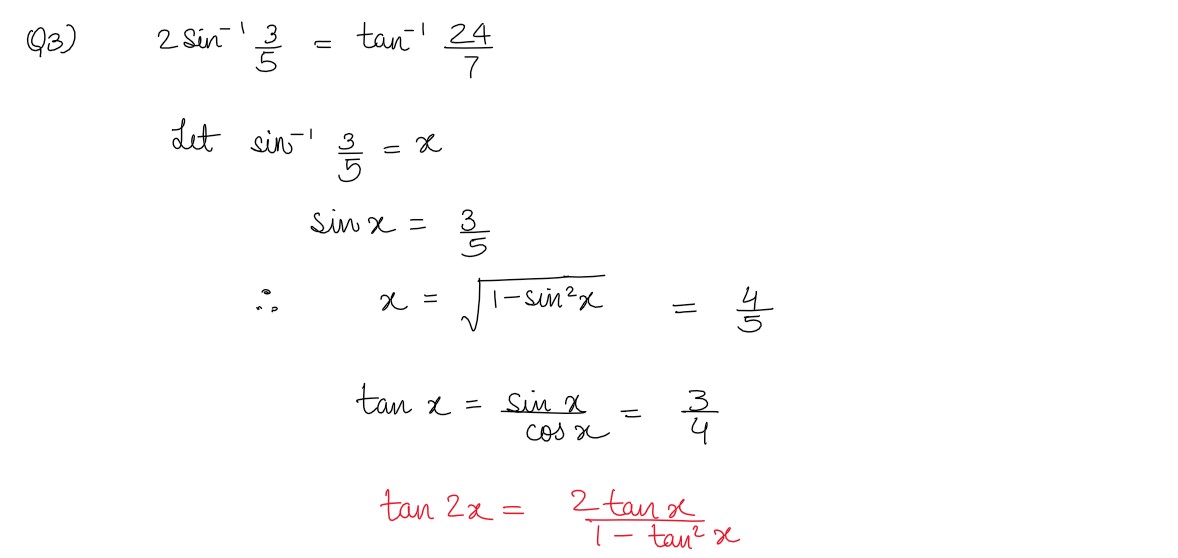 Q3) 2 sin⁻¹ 3/5 = tan⁻¹ 24/7
Let sin⁻¹ 3/5 = x
sin x = 3/5
∴ x = √(1 - sin²x) = 4/5
tan x = sin x / cos x = 3/4
tan 2x = 2 tan x / 1 - tan² x